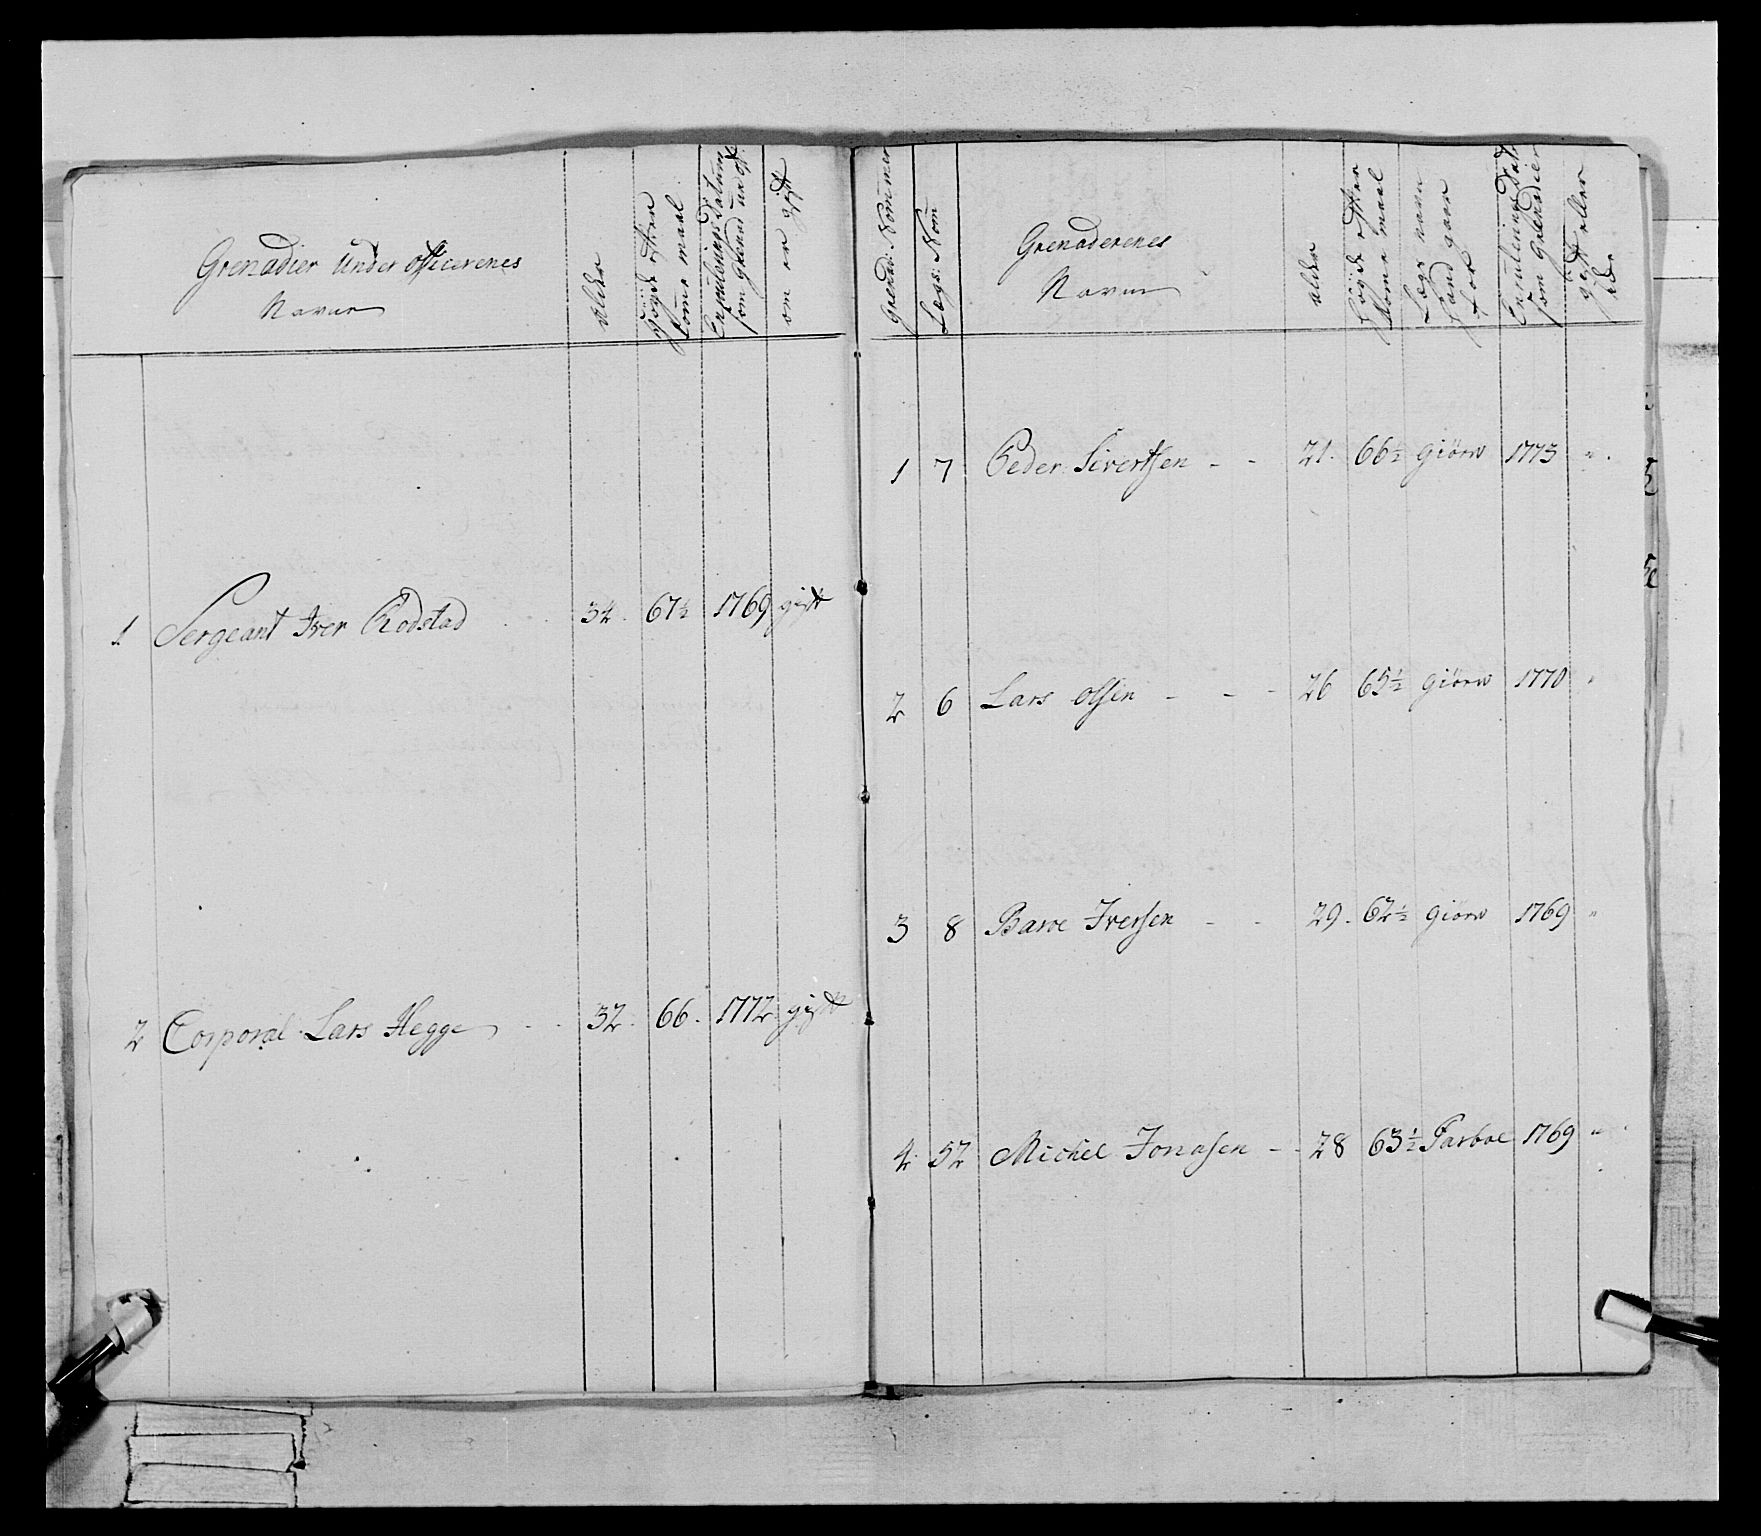 Grenadier Under officerenes
Navne
alder
høyde efter
Rome maal
Enroulerings datum
som grenad un of.
om er gift
1 Sergeant Iver Rodstad 34. 67½ 1769 gift
2 Corporal Lars Hegge 32. 66. 1772 gift
Grenad: Nommer
Lægs: Nom
Grenaderenes
Navne
alder
høyde efter
Rome maal
Lægs navn
hand gaar
for
Enroulerings dat
som Grenadier
gift eller
ede
1 7 Peder Sivertsen - - 21. 66½ giörv 1773 " .
2 6 Lars olsen - - - 26 65½ giörv 1770 "
3 8 Baroe Iversen - - 29. 62½ giörv 1769 "
4. 52 Michel Jonasen - - 28 63½ Farboe 1769 "